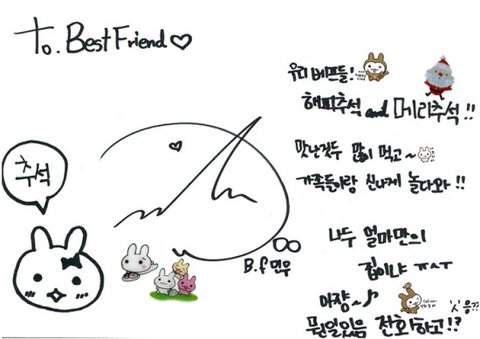 To. Best Friend♡
추석
B.f 민우
우리 베프들!
해피추석 and 메리추석!!
맛난것두 많이 먹고~
가족들이랑 신나게 놀다와!!
나두 얼마만의
집이냐 ㅠㅅㅜ
아쟝~♪
뭔일있음 전화하고!?